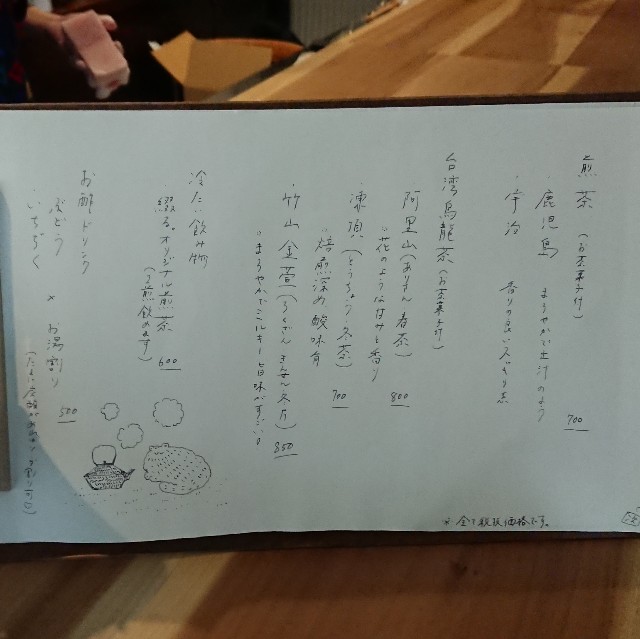 煎茶 (お茶菓子付) 700
・鹿児島 まろやかで土汁のよう
・宇治 香りの良いスッキリ系
台湾烏龍茶 (お茶菓子付)
・阿里山 (ありさん 春茶) 800
"花のようは甘みと香り
・凍頂 (とうちょう 冬茶) 700
"焙煎深め 酸味有
・竹山金萱 (ちくざん きんせん 冬片) 850
"まろやかでミルキー 旨味がすごい。
冷たい飲み物
・綴る。オリジナル煎茶 600
(3煎飲めます)
お酢ドリンク
・ぶどう
・いちぢく × お湯割り 500
※全て税抜価格です。